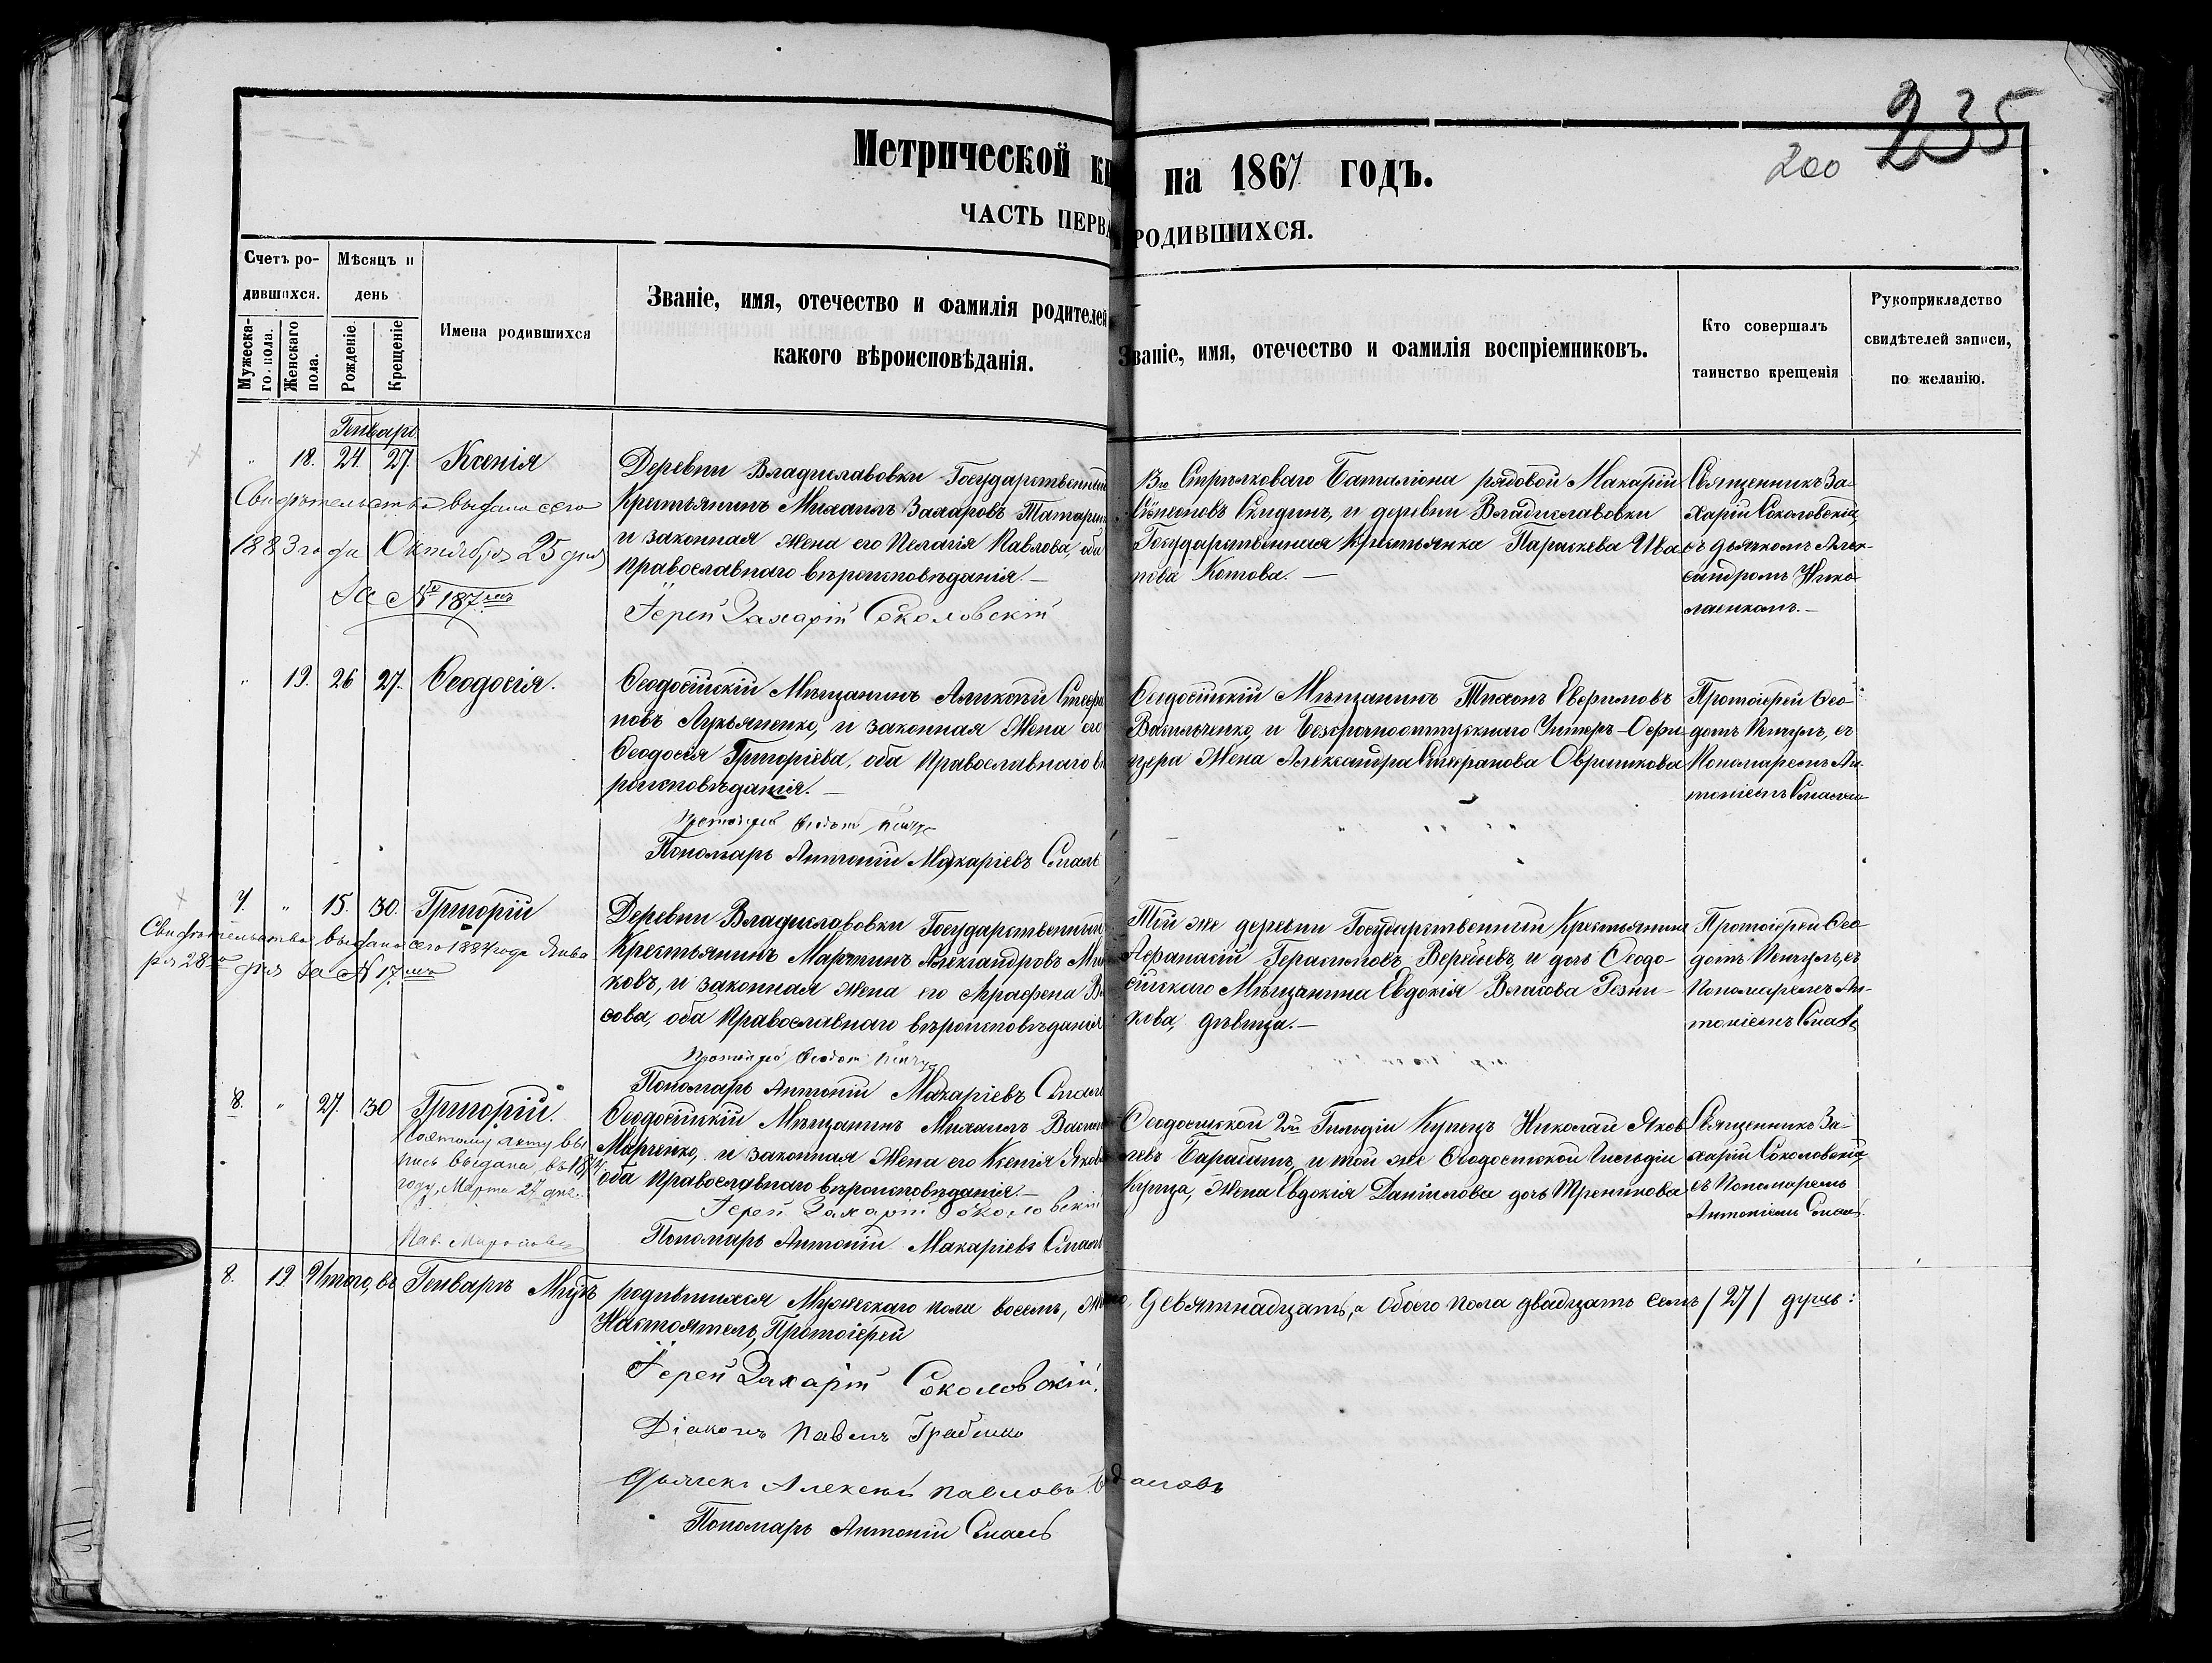 235
200
Метрической кн на 1867 годъ.
ЧАСТЬ ПЕРВА РОДИВШИХСЯ.
Счетъ ро-
дившихся.
Мужеска-
го пола.
Женскаго
пола.
Мѣсяцъ и
день
Рожденіе.
Крещеніе
Имена родившихся
Званіе, имя, отечество и фамилія родителей
какого вѣроисповѣданія.
Званіе, имя, отечество и фамилія воспріемниковъ.
Кто совершалъ
таинство крещенія
Рукоприкладство
свидѣтелей записи,
по желанію.
Генварь
" 18. 24. 27. Ксенія
Свидѣтельство выдано сего
1883 года Октября 25 дня
за № 187
Деревни Владиславовки Государственный
Крестьянинъ Михаилъ Захаровъ Татарин
и законная жена его Пелагія Павлова, оба
православнаго вѣроисповѣданія.—
Іерей Захарій Соколовскій
Стрѣлковаго Баталіона рядовой Макарій
Скидинъ, и деревни Владиславовки
Государственная Крестьянка Параскева Ива
нова Котова.—
Священникъ За-
харій Соколовскій,
съ дьячкомъ Алек-
сандромъ Нико-
лаенкомъ.—
" 19. 26 27. Ѳеодосія.
Ѳеодосійскій Мѣщанинъ Алексѣй Стефа
новъ Лукьяненко, и законная жена его
Ѳеодосія Григоріева, оба Православнаго вѣ
роисповѣданія.—
Протоіерей Ѳеодотъ
Пономарь Антоній Макаріевъ Смаль
Ѳеодосійскій Мѣщанинъ Тихонъ Ефримовъ
Васильченко, и Безсрочноотпускнаго Унтеръ-Офи
цера Жена Александра Стефанова Овчиникова
Протоіерей Ѳео-
дотъ съ
Пономаремъ Ан-
тоніемъ Смалем
7. " 15. 30. Григорій
Свидѣтельство выдано сего 1884 года Янва
ря 28го дня за № 17.
Деревни Владиславовки Государственный
Крестьянинъ Мартинъ Александровъ
ковъ, и законная жена его Аграфена Вл
сова, оба Православнаго вѣроисповѣданія
Протоіерей Ѳеодотъ
Пономарь Антоній Макаріевъ Смаль
Той же деревни Государственный Крестьянинъ
Афанасій Герасимовъ Верейевъ, и дочь Ѳеодо-
сійскаго Мѣщанина Евдокія Власова Резни-
кова, дѣвица.—
Протоіерей Ѳео-
дотъ съ
Пономаремъ Ан-
тоніемъ Смаль
8. " 27. 30 Григорій.
По этому акту вы
пись выдана въ
году, Марта 27 дня.
Ѳеодосійскій Мѣщанинъ Михаилъ Васил
Марченко, и законная жена его Ксенія Яков
оба Православнаго вѣроисповѣданія.—
Іерей Захарій Соколовскій
Пономарь Антоній Макаріевъ Смаль
Ѳеодосійской 2ой Гильдіи Купецъ Николай Яков
левъ Барабашъ, и той же Ѳеодосійской Гильдіи
Купца, Жена Евдокія Даніилова дочь Треникова
Священникъ За-
харій Соколовскій,
съ Пономаремъ
Антоніемъ Смаль.
8. 19. Итого, въ Генварѣ Мцѣ родившихся Мужескаго пола восемь, девятнадцать, а обоего пола двадцать семь /27/ душъ:
Настоятель, Протоіерей
Іерей Захарій Соколовскій.
Діаконъ Павелъ Грабенко
Дьячекъ Алексѣй Павловъ
Пономарь Антоній Смаль